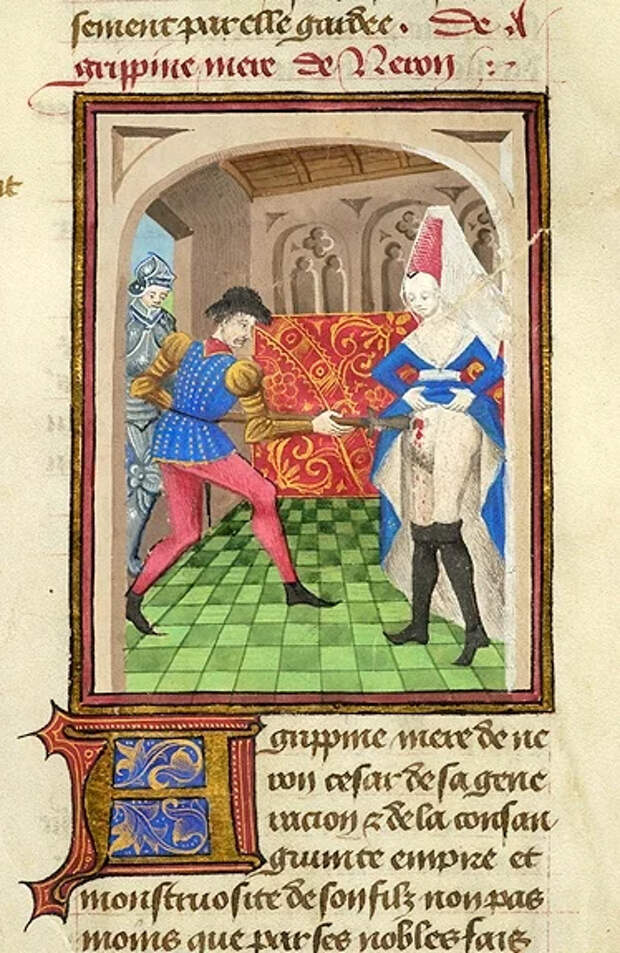 sement par elle gardee. De A
grippine mere de Neron
Agrippine mere de ne
ron cesar de sa gene
racion & de la consan
guinite empire et
monstruosite de son filz non pas
moins que par ses nobles fais